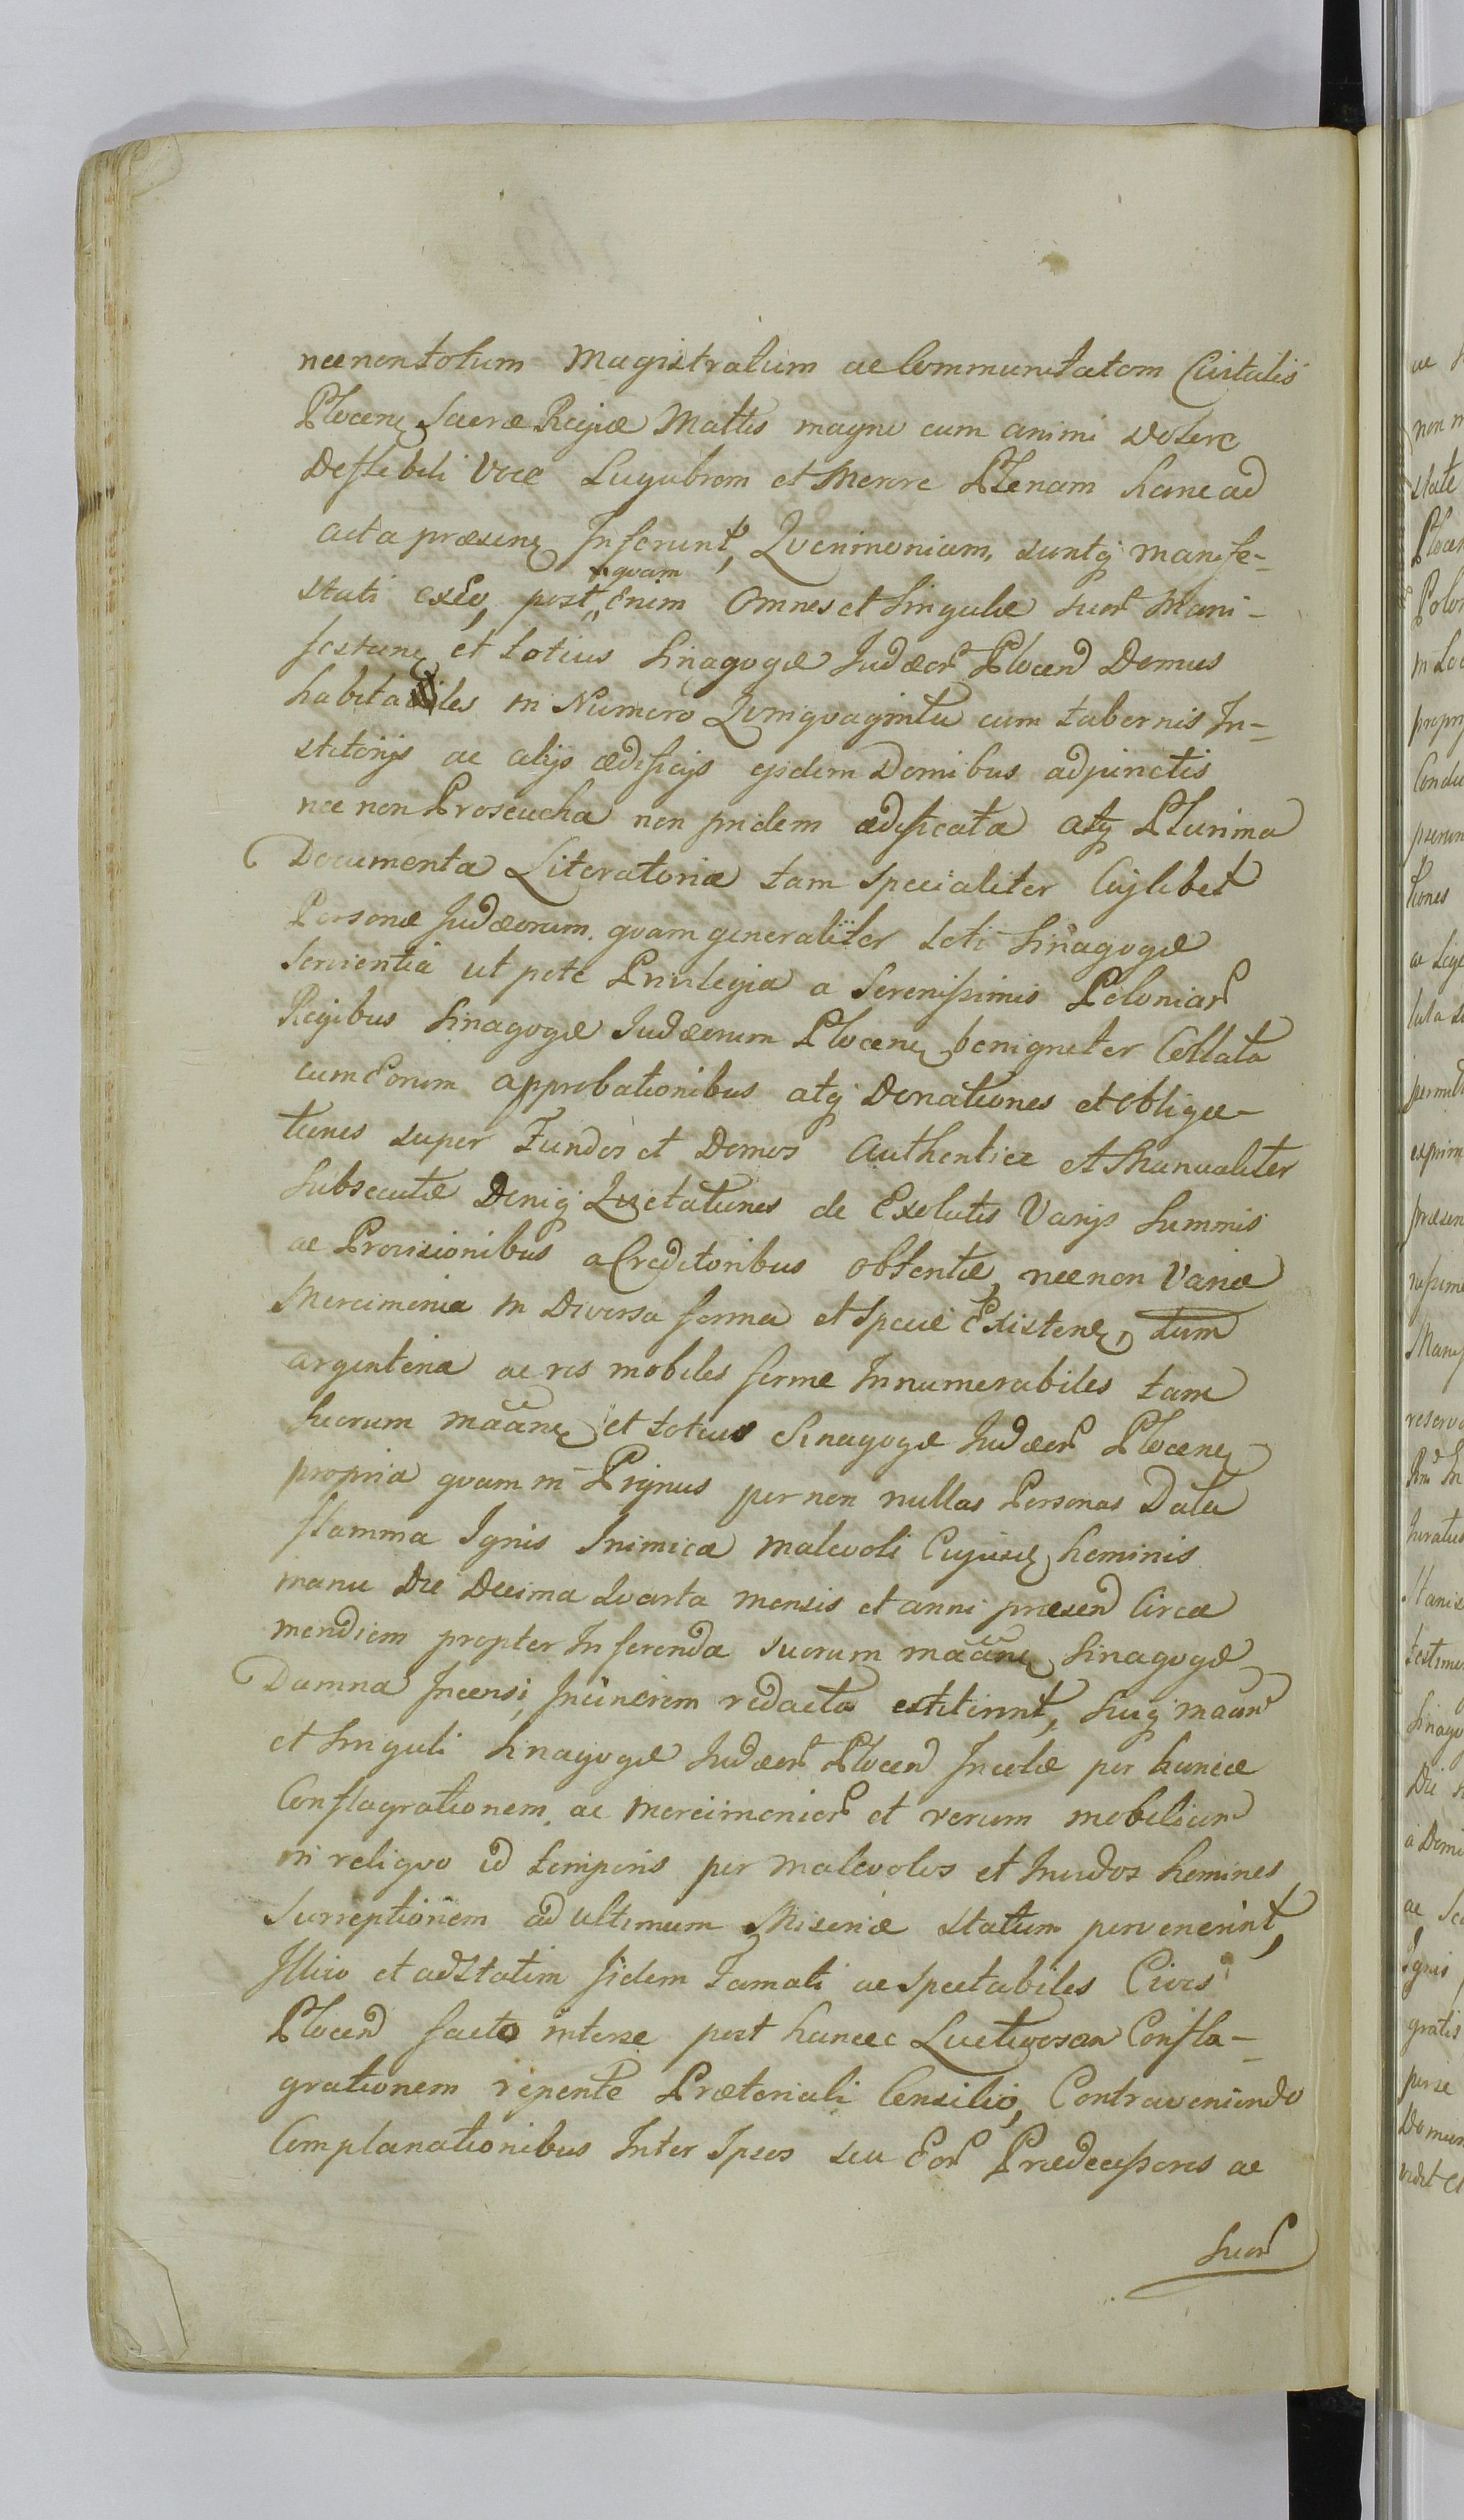 necnon totum Magistratum ac Communitatem Civitatis
Plocen Sacræ Regiæ Mattis magno cum animi dolore
Deflebili Voce Lugubrem et Merore Plenam hanc ad
acta præsen Inferunt, Qverimoniam, suntq manife-
stati ex eo, post quam Enim Omnes et Singulæ suor Mani-
festan et totius Sinagogæ Judæor Plocen Domus
habitabiles in Numero Qvinqvaginta cum tabernis In-
stitorijs ac alijs ædificijs ejsdem Domibus adjunctis
nec non Proseucha non pridem ædificata atq Plurima
Documenta Literatoria tam specialiter Cujlibet
Personæ Judæorum qvam generaliter toti Sinagogæ
servientia ut pote Privilegia a Serenissimis Poloniar
Regibus Sinagogæ Judæorum Plocen benigniter Collata
cum Eorum approbationibus atq Donationes et obliga-
tiones super Fundos et Domos Authentice et Manualiter
Subsecutæ Deniq Qvietationes de Exolutis Varijs Summis
ac Provisionibus a Creditoribus obtentæ, necnon Varia
Mercimonia in Diversa forma et specie Existen, tum
argenteria ac res mobiles ferme Innumerabiles tam
suorum maan et totius Sinagogæ Judæor Plocen
propria qvam in Pignus per non nullas Personas Data
flamma Ignis Inimica malevoli Cujusq hominis
manu Die Decima Qvarta mensis et anni præsen Circa
meridiem propter Inferenda suorum maan Sinagogæ
Damna Incensi, In cinerem redacta extiterint, Suiq maan
et Singuli Sinagogæ Judæor Plocen Incolæ per hancce
Conflagrationem, ac mercimonior et rerum mobilium
in reliqvo id temporis per malevolos et Invidos homines
surreptionem ad ultimum Miseriæ statum pervenerint,
Illico et adstatim jidem Famati ac spectabiles Cives
Plocen facto inter se post hancce Luctuosam Confla-
grationem repente Prætoriali Consilio, Contraveniendo
Complanationibus Inter Ipsos seu Eor Prædecessores ac
Suor